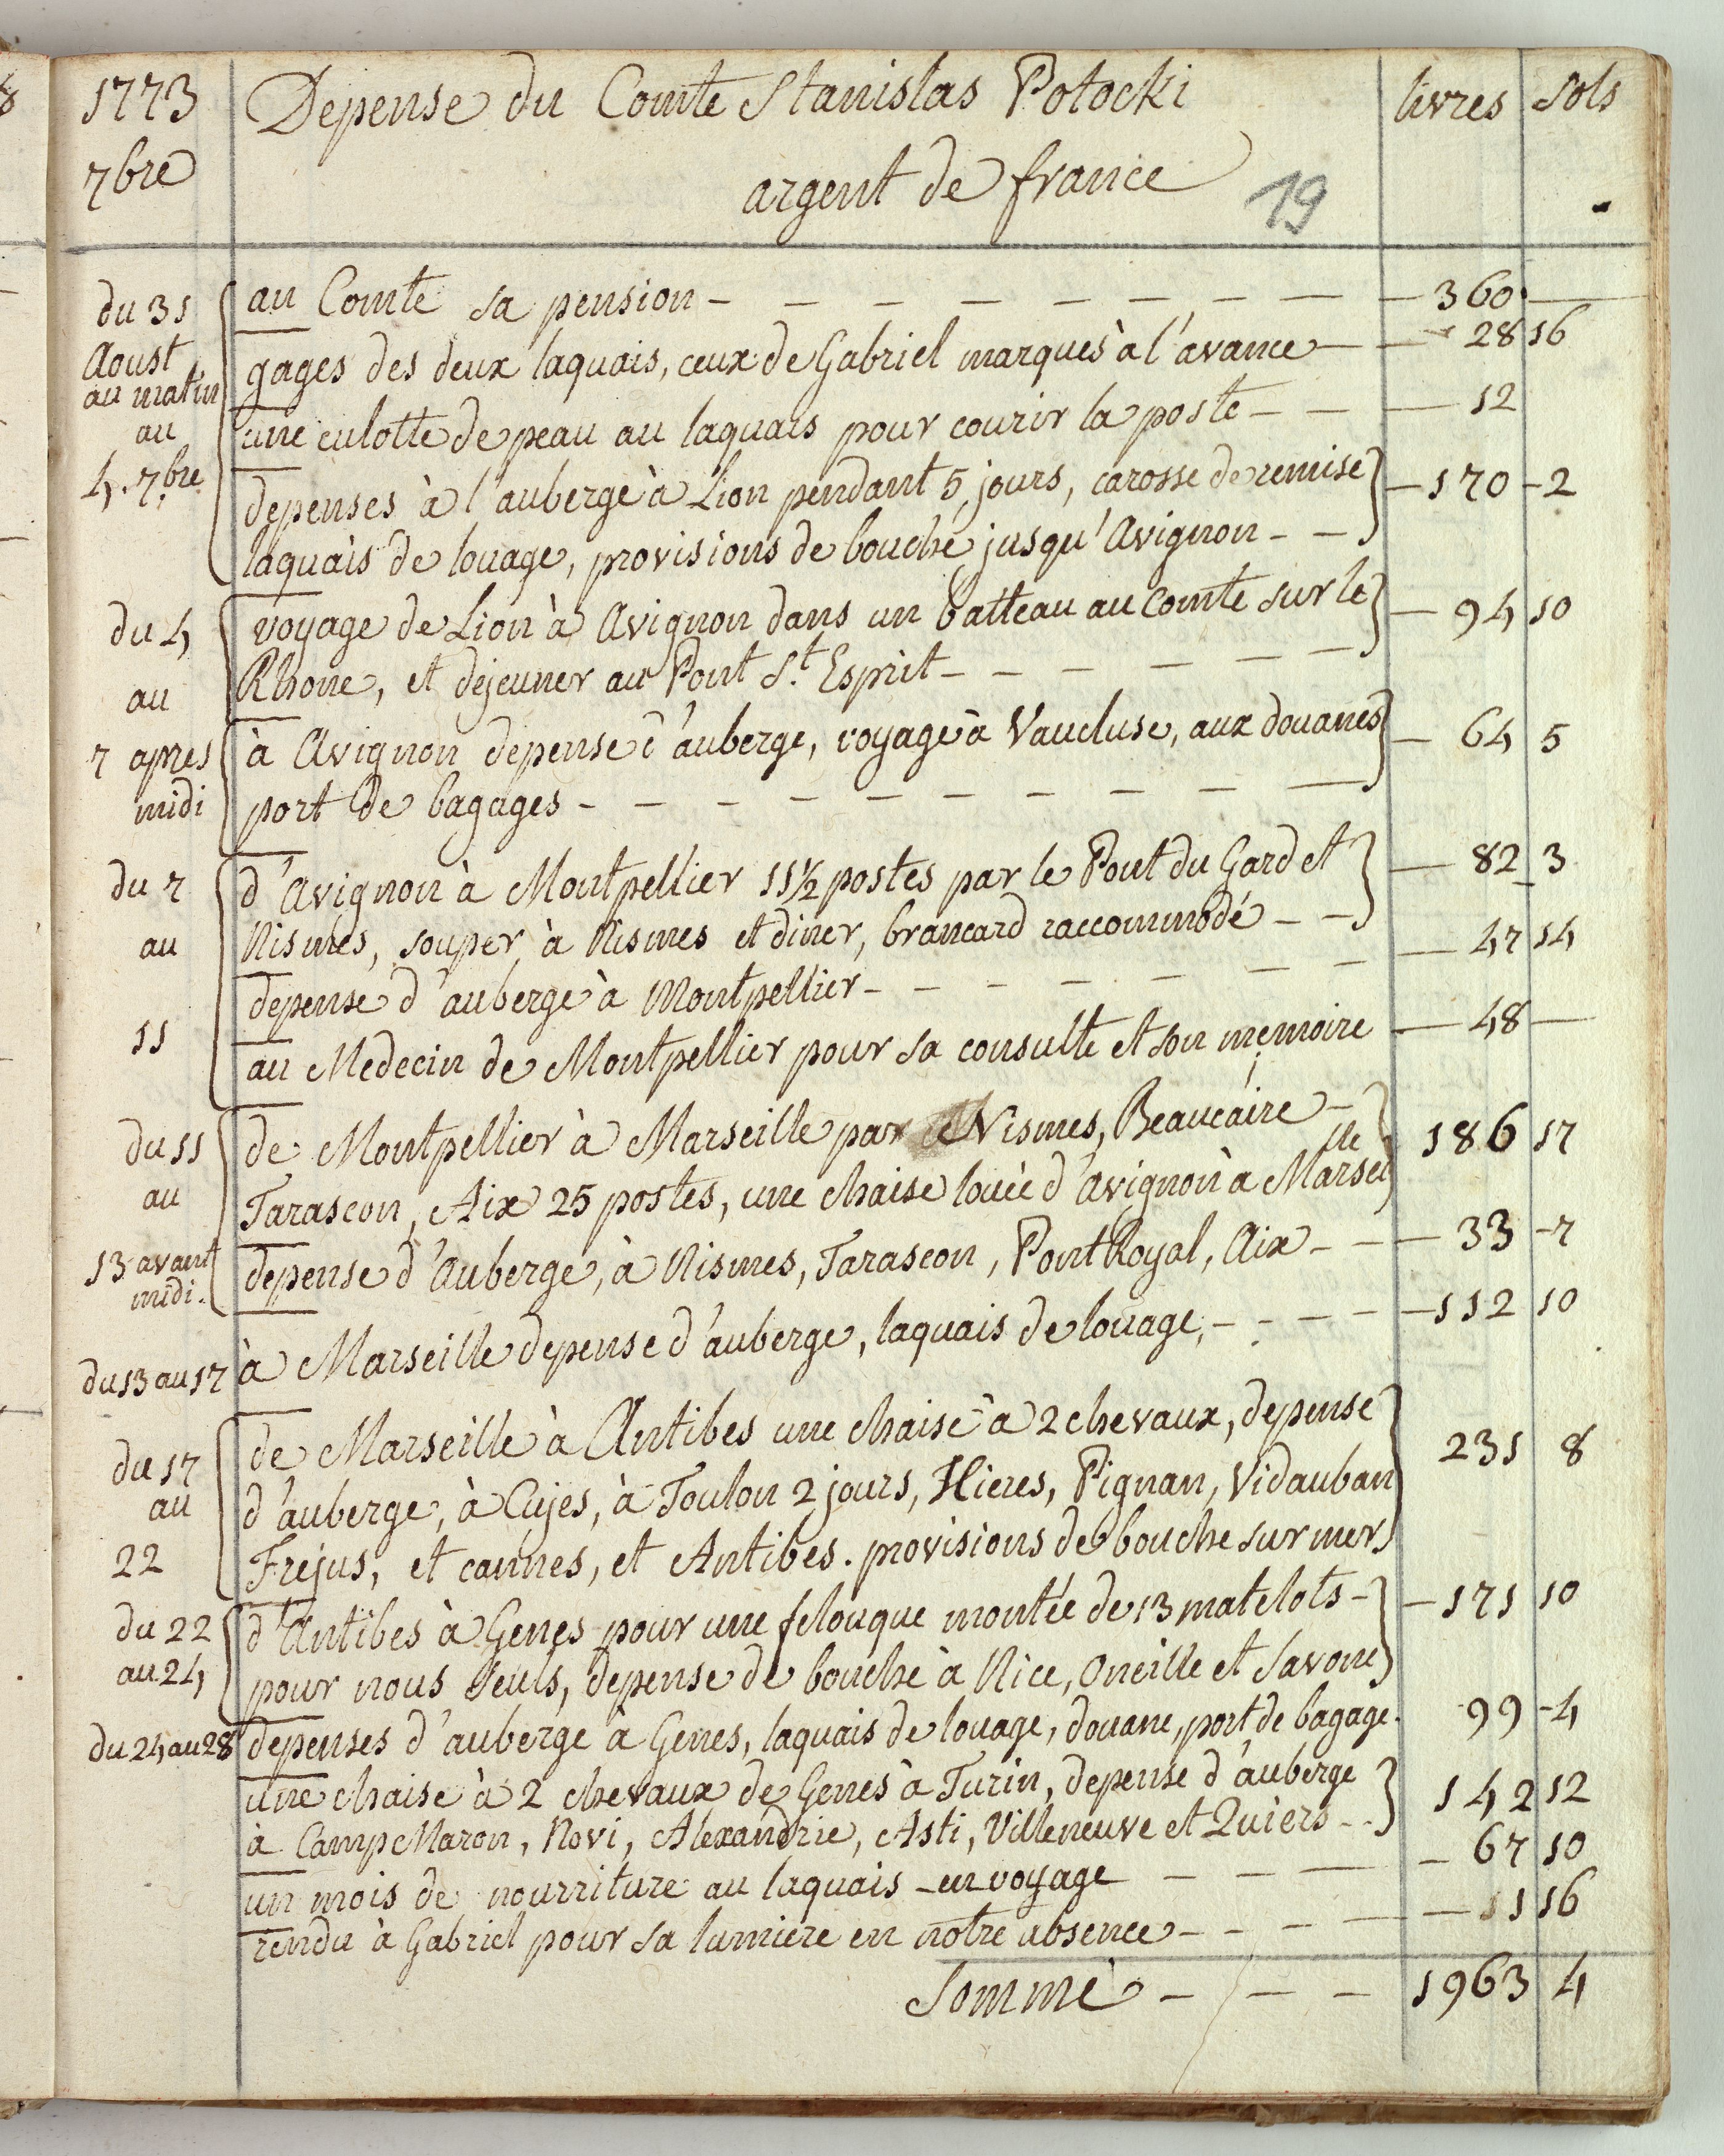 1773 Depense du Comte Stanislas Potocki livres sols
7bre argent de france 19
du 31 au Comte sa pension - - - - - - - - - 360
Aoust gages des deux laquais, ceux de Gabriel marqués à l'avance - - 28 16
au matin
au une culotte de peau au laquais pour courir la poste - - - 12
4. 7bre depenses à l'auberge à Lion pendant 5 jours, carosse de remise - 170 - 2
laquais de louage, provisions de bouche jusqu'Avignon - -
du 4 voyage de Lion à Avignon dans un batteau au Comte sur le - 94 10
au Rhone, et dejeuner au Pont St. Esprit - - - - - -
7 apres à Avignon depense d'auberge, voyage à Vaucluse, aux douanes - 64 5
midi port de bagages - - - - - - - - - -
du 7 d'Avignon à Montpellier 11½ postes par le Pont du Gard et - 82 3
au Nismes, souper à Nismes et diner, brancard raccommodé - -
depense d'auberge à Montpellier - - - - - - - 47 14
11 au Medecin de Montpellier pour sa consulte et son memoire - 48 -
du 11 de Montpellier à Marseille par Nismes, Beaucaire - 186 17
au Tarascon, Aix 25 postes, une chaise louée d'Avignon à Marseille
13 avant depense d'Auberge, à Nismes, Tarascon, Pont Royal, Aix - - - 33 - 7
midi.
du 13 au 17 à Marseille depense d'auberge, laquais de louage, - - - - - 112 10
du 17 de Marseille à Antibes une chaise à 2 chevaux, depense 231 8
au d'auberge, à Cujes, à Toulon 2 jours, Hieres, Pignan, Vidauban
22 Frejus, et cannes, et Antibes. provisions de bouche sur mer
du 22 d'Antibes à Genes pour une felouque montée de 13 matelots - - 171 10
au 24 pour nous seuls, depense de bouche à Nice, Oneille et Savone
du 24 au 28 depenses d'auberge à Genes, laquais de louage, douane, port de bagage. 99 - 4
une chaise à 2 chevaux de Genes à Turin, depense d'auberge 142 12
à Camp Maron, Novi, Alexandrie, Asti, Villeneuve et Quiers - -
un mois de nourriture au laquais - en voyage - - - - 67 10
rendu à Gabriel pour sa lumiere en notre absence - - - - - 11 16
Somme - - - 1963 4